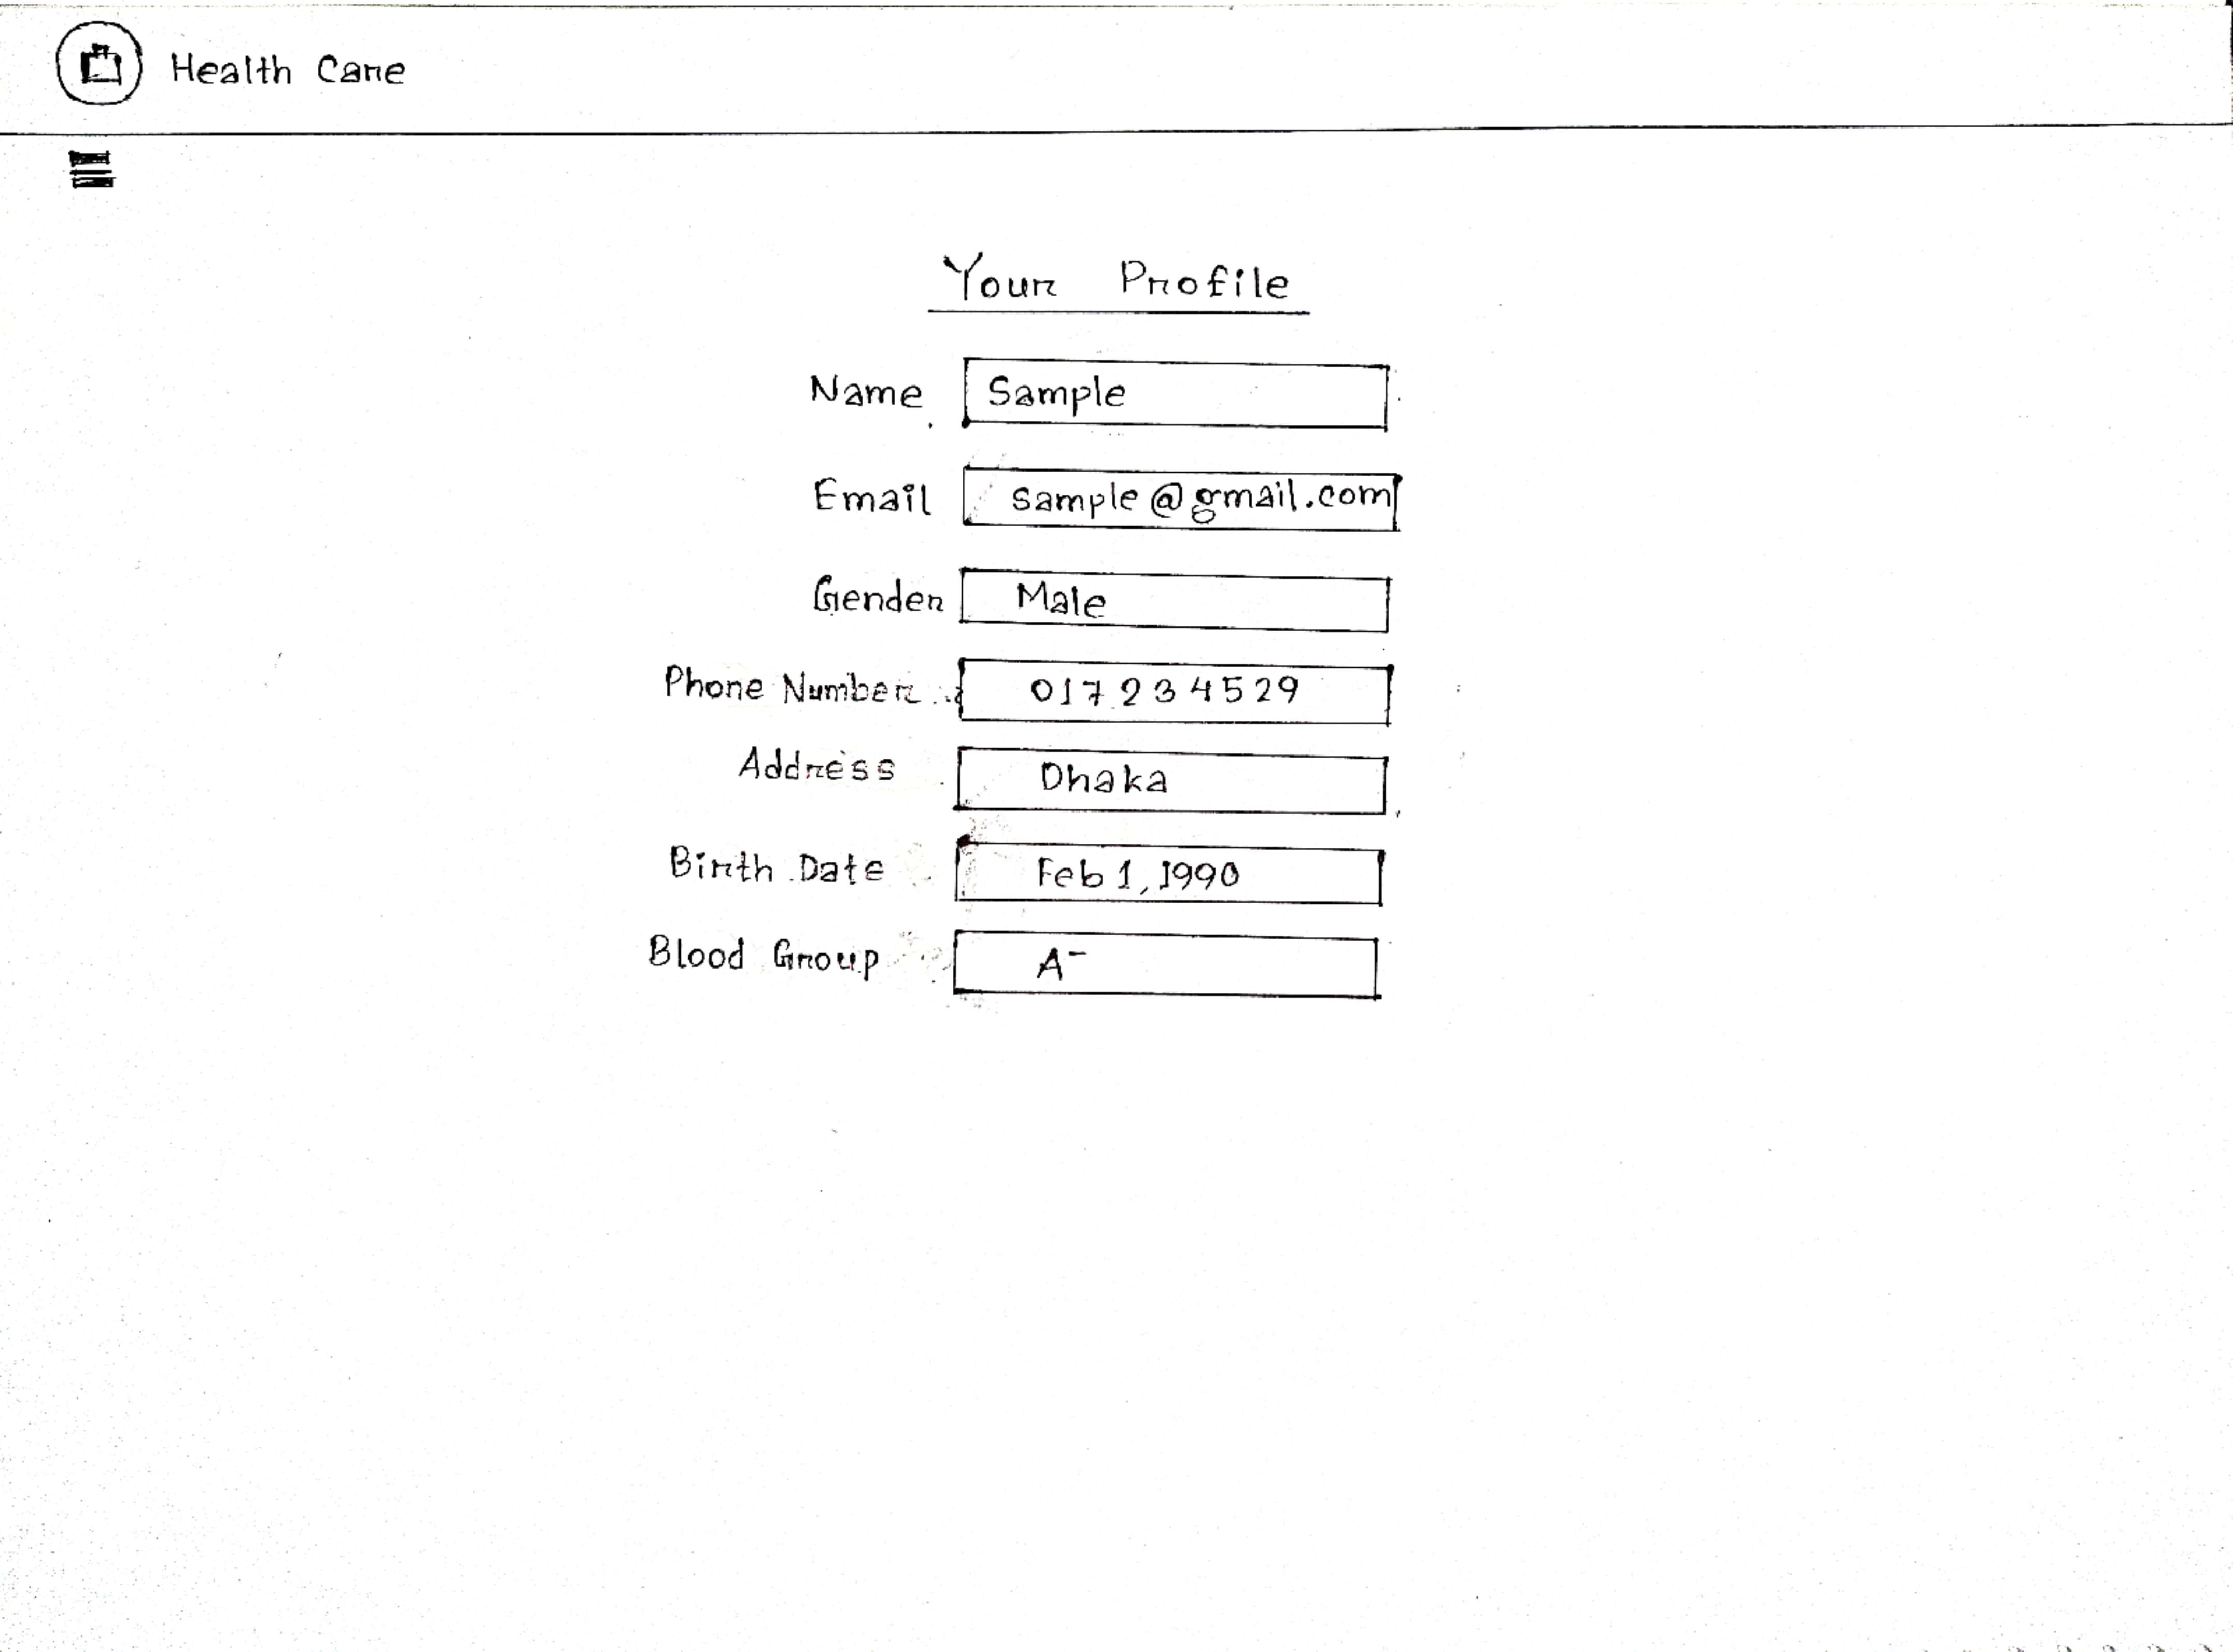 Health Care
Your Profile
Name Sample
Email sample@gmail.com
Gender Male
Phone Number 017234529
Address Dhaka
Birth Date Feb 1, 1990
Blood Group A-